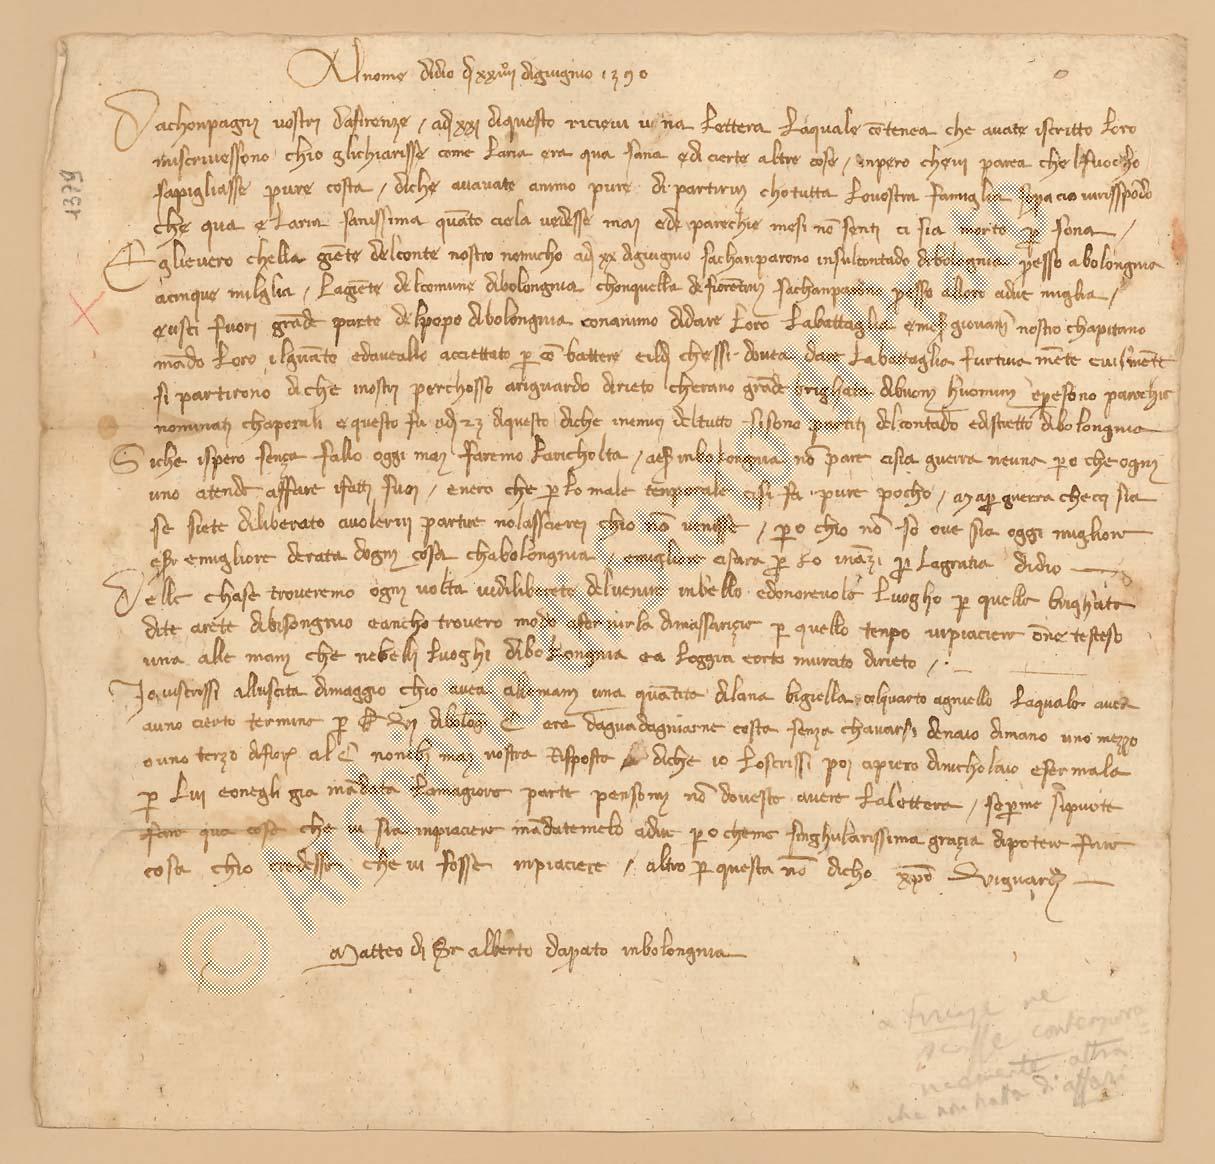 Al nome di dio dì xxiiii di giugnio 1390
Da chonpagni vostri da firenze, a dì xxi di questo ricievi una lettera la quale chontenea che avate iscritto loro
mi scrivessono chio gli chiarisse come laria era qua sana e di cierte altre cose, inpero che vi parea che l fuocho
sapigliasse pure costa, di che avavate animo pure di partirvi cho tutta la vostra famiglia sopa cio vi rispondo
che qua e laria sanissima quanto ci ela vedesse mai ed e parechie mesi non senti ci sia morto persona,
Egli e vero che lla giente del conte nostro nemicho a dì xx di giugnio sachanparono in sul contado di bolongnia presso a bolongnia
a cinque miglia, la giente del comune di bolongnia chon quella de fiorentini sachanparono presso a lloro a due miglia,
e usci fuori grande parte del popo di bolongnia con animo di dare loro la battaglia e mes giovanni nostro chapitano
mando loro il guanto ed aveallo accettato per conbattere e il dì che ssi dovea dare la battaglia furtiva mente e vilmente
si partirono di che i nostri perchosso a riguardo dirieto cherano grande brighata di buoni huomini e presono parechie
nominati chaporali e questo fu a dì 23 di questo di che i nemici del tutto si sono partiti del contado e distretto di bolongnia
Siche ispero senza fallo oggi mai faremo la richolta, a esser in bolongnia non pare ci sia guerra neuna pero che ogni
uno atende a ffare i fatti suoi, e vero che per lo male temporale ci si fa pure pocho, ma per guerra che cci sia
se siete diliberato a volervi partire no lasscierei chio non venisse, pero chio non so ove sia oggi migliore
essere e migliore derata dogni cosa cha bolongnia, e migliore ci sara per lo inanzi per la grazia di dio
Delle chase troveremo ogni volta vi diliberete del venire in bello ed onorevole luogho per quelle brighate
dite arete di bisongnio e ancho trovero modo a fornirla di massarizie per quello tenpo vi piaciere one testeso
una alle mani che ne belli luoghi di bolongnia e a loggia e orto murato dirieto,
Io vi scrissi all uscita di maggio chio avea a le mani una quantita di lana bigiella col quarto agniello la quale avea
a uno cierto termine per bolog C era da guadagniarne costa senza chavarsi denaio di mano uno mezzo
o uno terzo di fior al C non ebi mai vostra risposta di che io lo scrissi poi a piero di nicholaio e fermala
per lui e non egli gia mandata la magiore parte penso mi non dovesti avere la lettera, se per me si puote
fare qua cosa che vi sia in piaciere mandatemelo a dire pero che me singhularissima grazia di potere fare
cosa chio credesse che vi fosse in piaciere, altro per questa non dicho xpo vi guardi
Matteo di ser alberto da prato in bolongnia
1379
a Firenze ne
scrisse contempora
neamente altra
che non tratta di affari
© Archivio di Stato di Prato